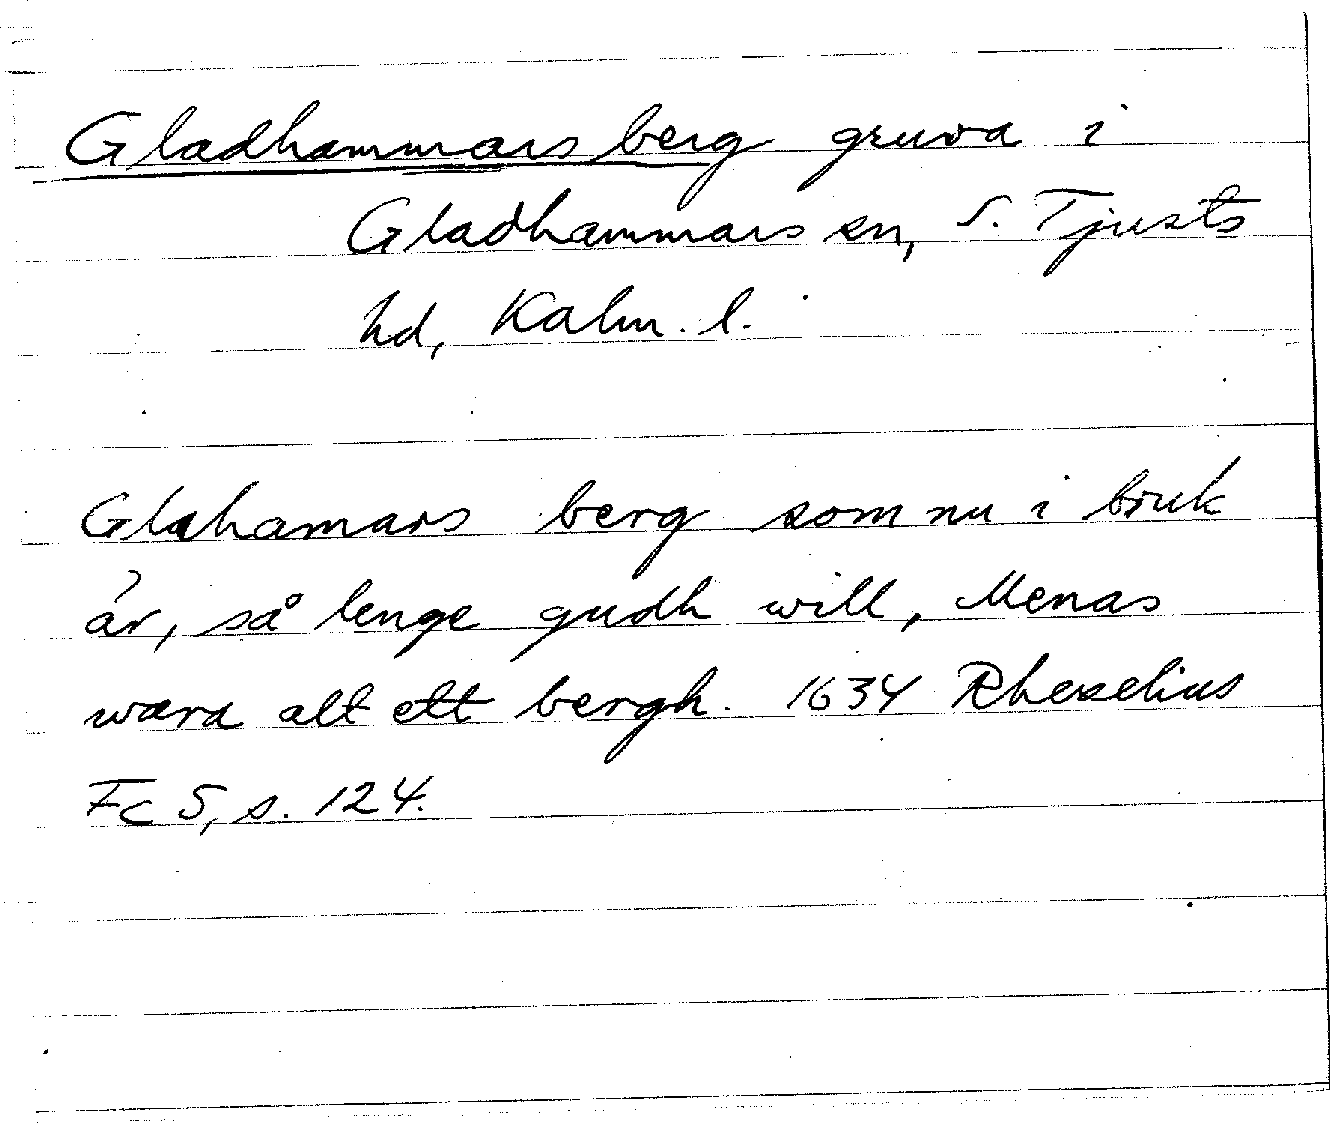 Gladhammars berg gruva i
Gladhammars sn, S. Tjusts
hd, Kalm. l.
Glahamars berg som nu i bruk
är, så lenge gudh will, Menas
wara alt ett bergh. 1634 Rhezelius
Fc 5, s. 124.